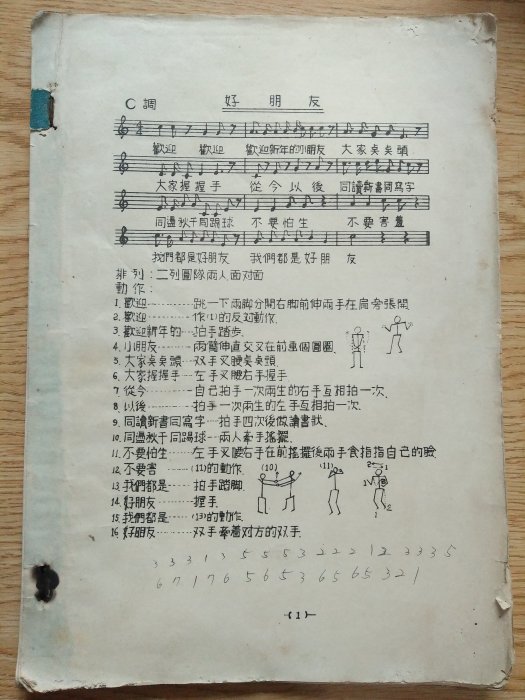 好朋友
C調
歡迎 歡迎 歡迎新年的小朋友 大家臭臭頭
大家握握手 從今以後 同讀新書同寫字
同盪秋千同踢球 不要怕生 不要害羞
我們都是好朋友 我們都是好朋友
排列：二列圓隊兩人面对面
動作：
1.歡迎………跳一下兩脚分開右脚前伸兩手在肩旁張開.
2.歡迎………作(1)的反动作.
3.歡迎新年的…拍手踏步.
4.小朋友………兩臂伸直交叉在前車個圓圈.
5.大家臭臭頭…双手叉腰臭臭頭
6.大家握握手…左手叉腰右手握手
7.從今…………自己拍手一次兩生的右手互相拍一次.
8.以後…………拍手一次兩生的左手互相拍一次.
9.同讀新書同寫字…拍手四次後做讀書狀.
10.同盪秋千同踢球…兩人牽手搖擺.
11.不要怕生……左手叉腰右手在前搖擺後兩手食指指自己的臉
12.不要害………(11)的動作. (10) (11)
13.我們都是……拍手踏脚
14.好朋友………握手.
15.我們都是……(13)的動作.
16.好朋友………双手牽着对方的双手.
3 3 3 1 3 5 5 5 3 2 2 2 1 2 3 3 3 5
6 7 1 7 6 5 6 5 3 6 5 6 5 3 2 1
(1)